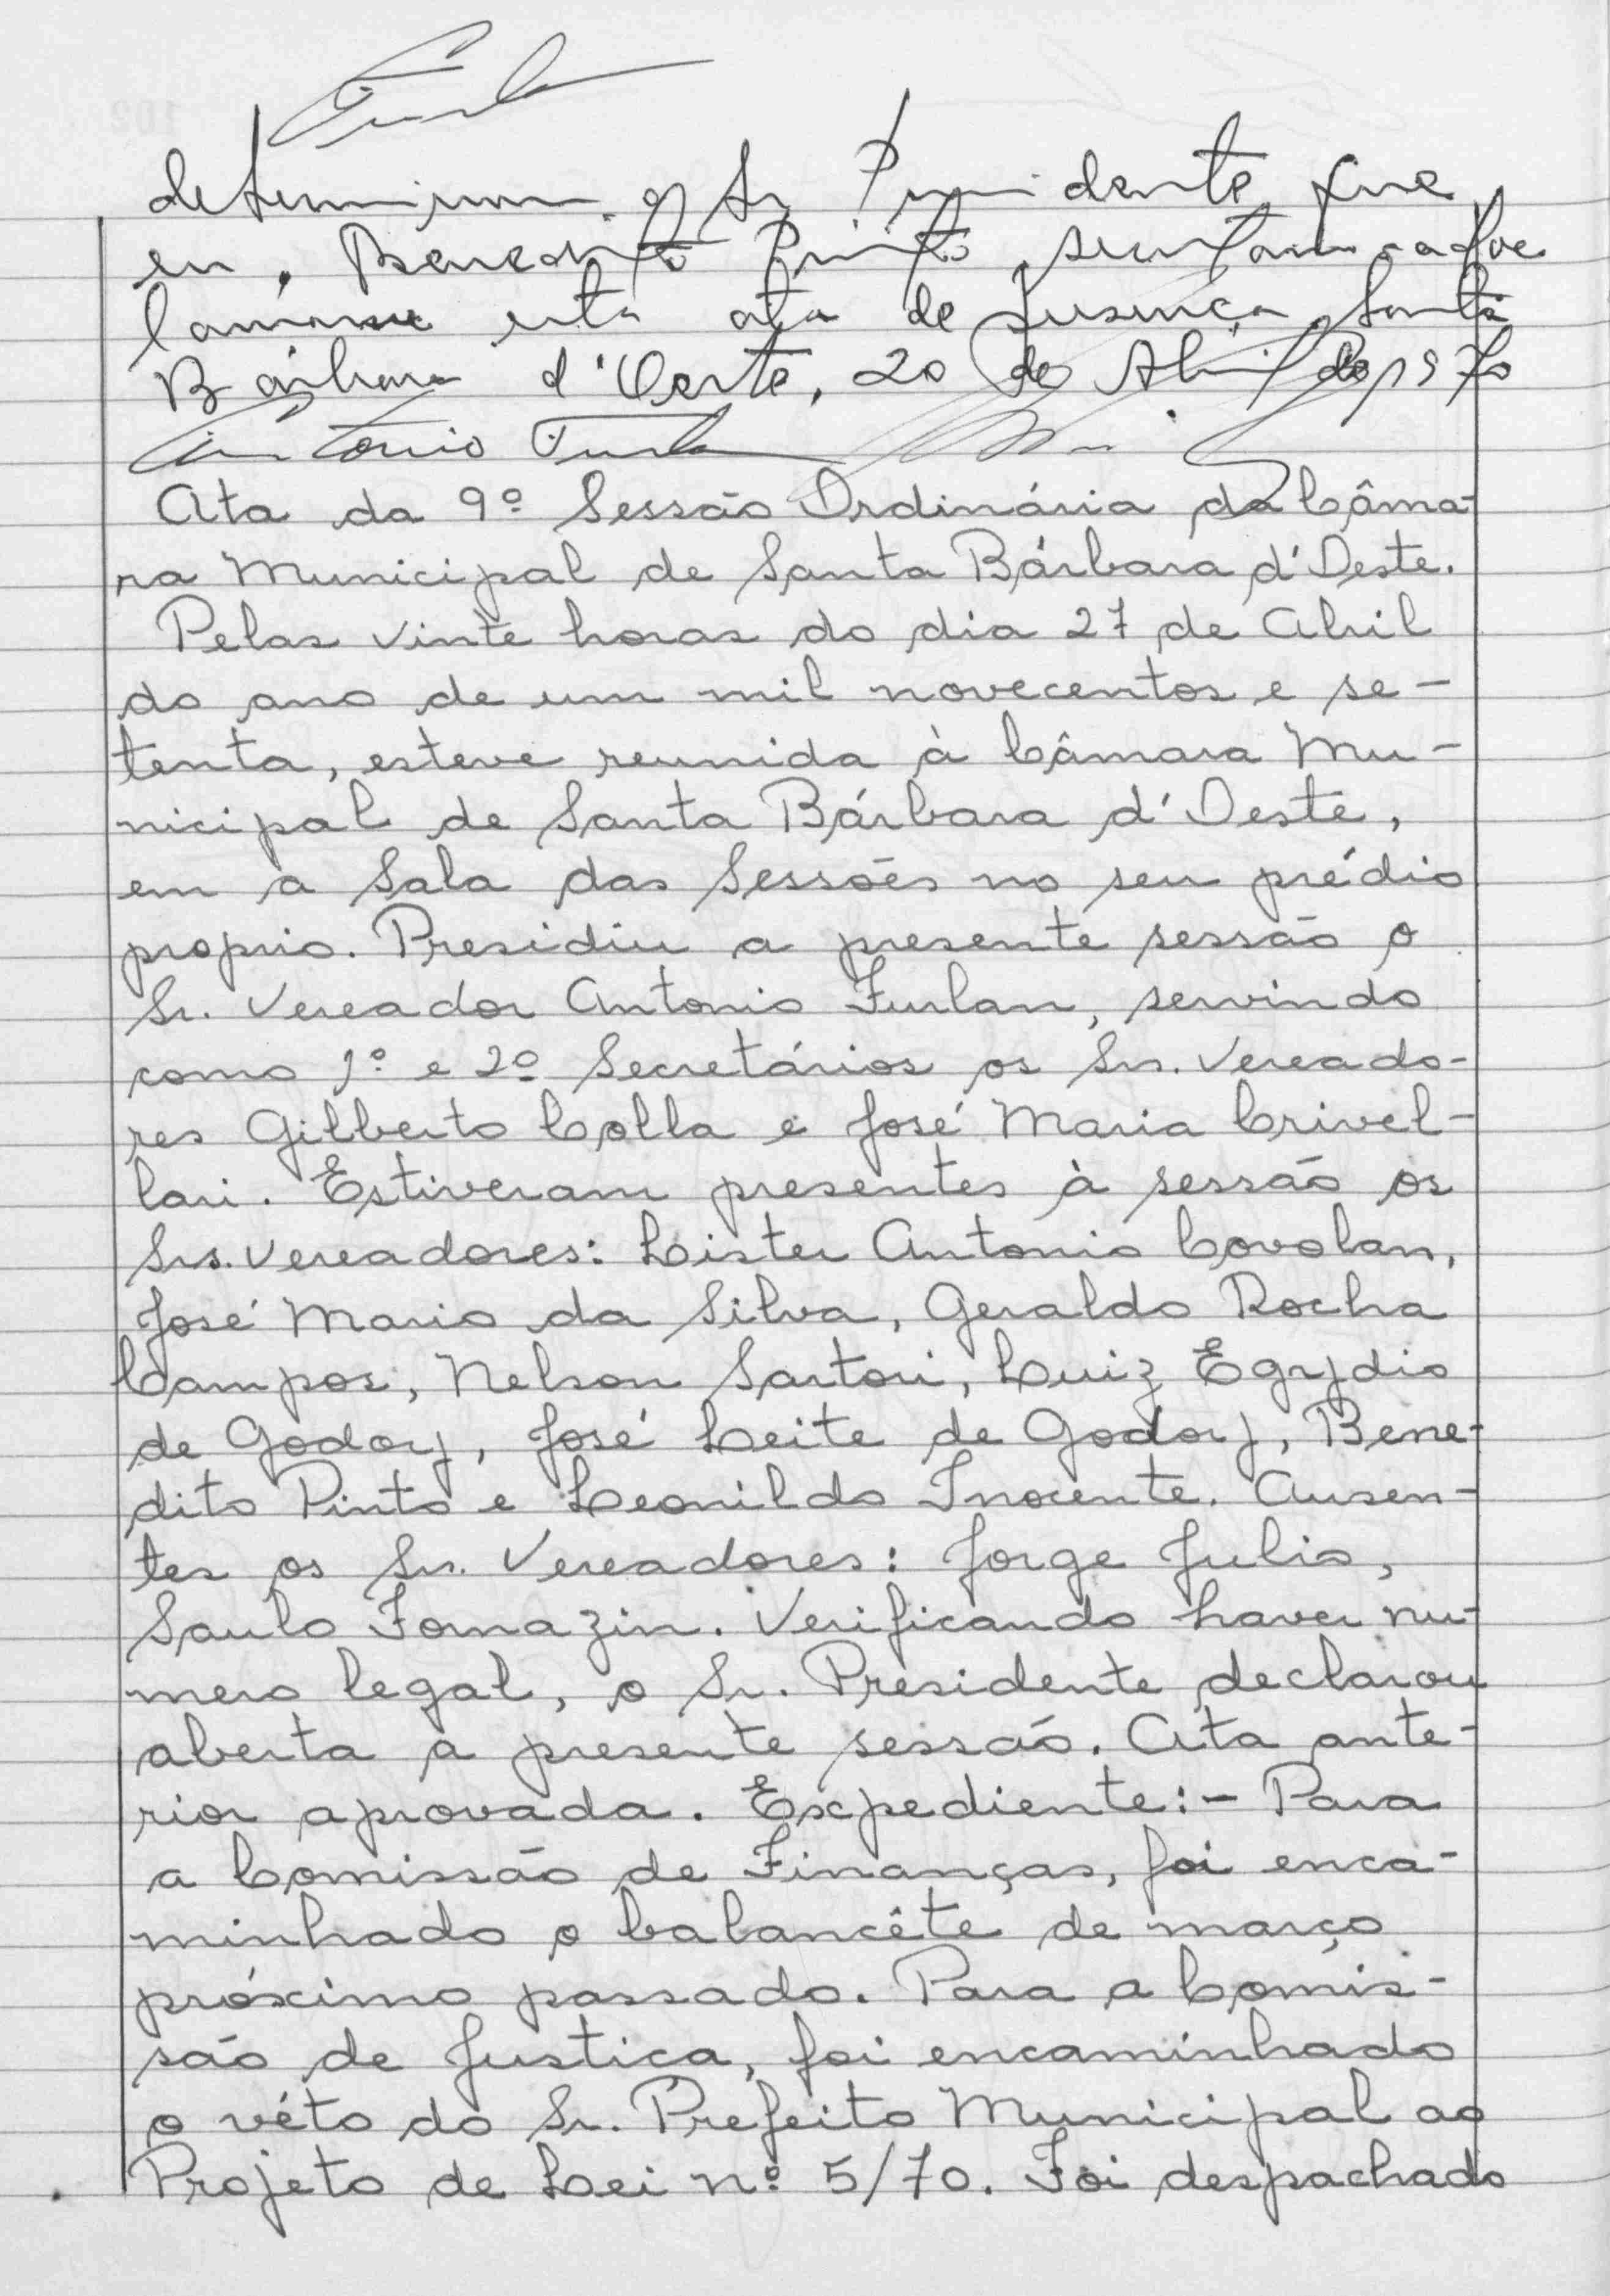 Furlan
determinou o Sr Presidente que
eu, Benedito Pinto, secretario
esta ata de presença. Santa
Bárbara d'Oeste, 20 de Abril de 1970
Antonio Furlan
Ata da 9º Sessão Ordinária da Câma-
ra Municipal de Santa Bárbara d'Oeste.
Pelas vinte horas do dia 27 de Abril
do ano de um mil novecentos e se-
tenta, esteve reunida à Câmara Mu-
nicipal de Santa Bárbara d'Oeste,
em a Sala das Sessões no seu prédio
proprio. Presidiu a presente sessão o
Sr. Vereador Antonio Furlan, servindo
como 1º e 2º Secretários os Srs. Vereado-
res Gilberto Colla e José Maria Crivel-
lari. Estiveram presentes à sessão os
Srs. Vereadores: Lister Antonio Covolan,
José Mario da Silva, Geraldo Rocha
Campos, Nelson Sartori, Luiz Egydio
de Godoy, José Leite de Godoy, Bene-
dito Pinto e Leonildo Inocente. Ausen-
tes os Srs. Vereadores: Jorge Julio,
Saulo Fornazin. Verificando haver nu-
mero legal, o Sr. Presidente declarou
aberta a presente sessão. Ata ante-
rior aprovada. Expediente:- Para
a Comissão de Finanças, foi enca-
minhado o balancête de março
próximo passado. Para a Comis-
são de Justiça, foi encaminhado
o véto do Sr. Prefeito Municipal ao
Projeto de Lei nº 5/70. Foi despachado